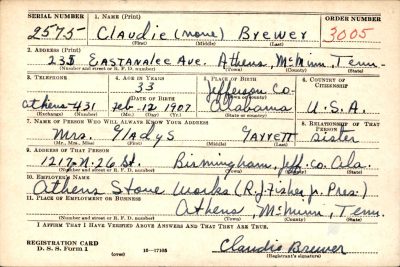 SERIAL NUMBER 1. NAME (Print) ORDER NUMBER
2575 Claudie (none) Brewer 3005
(First) (Middle) (Last)
2. ADDRESS (Print)
23 Eastanalee Ave. Athens, McMinn, Tenn.
(Number and street or R. F. D. number) (Town) (County) (State)
3. TELEPHONE 4. AGE IN YEARS 5. PLACE OF BIRTH 6. COUNTRY OF CITIZENSHIP
33 Jefferson Co.
DATE OF BIRTH (Town or county)
Athens 431 Feb. 12, 1907 Alabama U.S.A.
(Exchange) (Number) (Mo.) (Day) (Yr.) (State or country)
7. NAME OF PERSON WHO WILL ALWAYS KNOW YOUR ADDRESS 8. RELATIONSHIP OF THAT PERSON
Mrs. Gladys Garrett sister
(Mr., Mrs., Miss) (First) (Middle) (Last)
9. ADDRESS OF THAT PERSON
1217 N. 26 St. Birmingham, Jeff. Co. Ala.
(Number and street or R. F. D. number) (Town) (County) (State)
10. EMPLOYER'S NAME
Athens Stove Works (R.J. Fisher Jr. Pres.)
11. PLACE OF EMPLOYMENT OR BUSINESS
Athens, McMinn, Tenn.
(Number and street or R. F. D. number) (Town) (County) (State)
I AFFIRM THAT I HAVE VERIFIED ABOVE ANSWERS AND THAT THEY ARE TRUE.
REGISTRATION CARD
D. S. S. Form 1 (over) 16—17105 Claudie Brewer
(Registrant's signature)